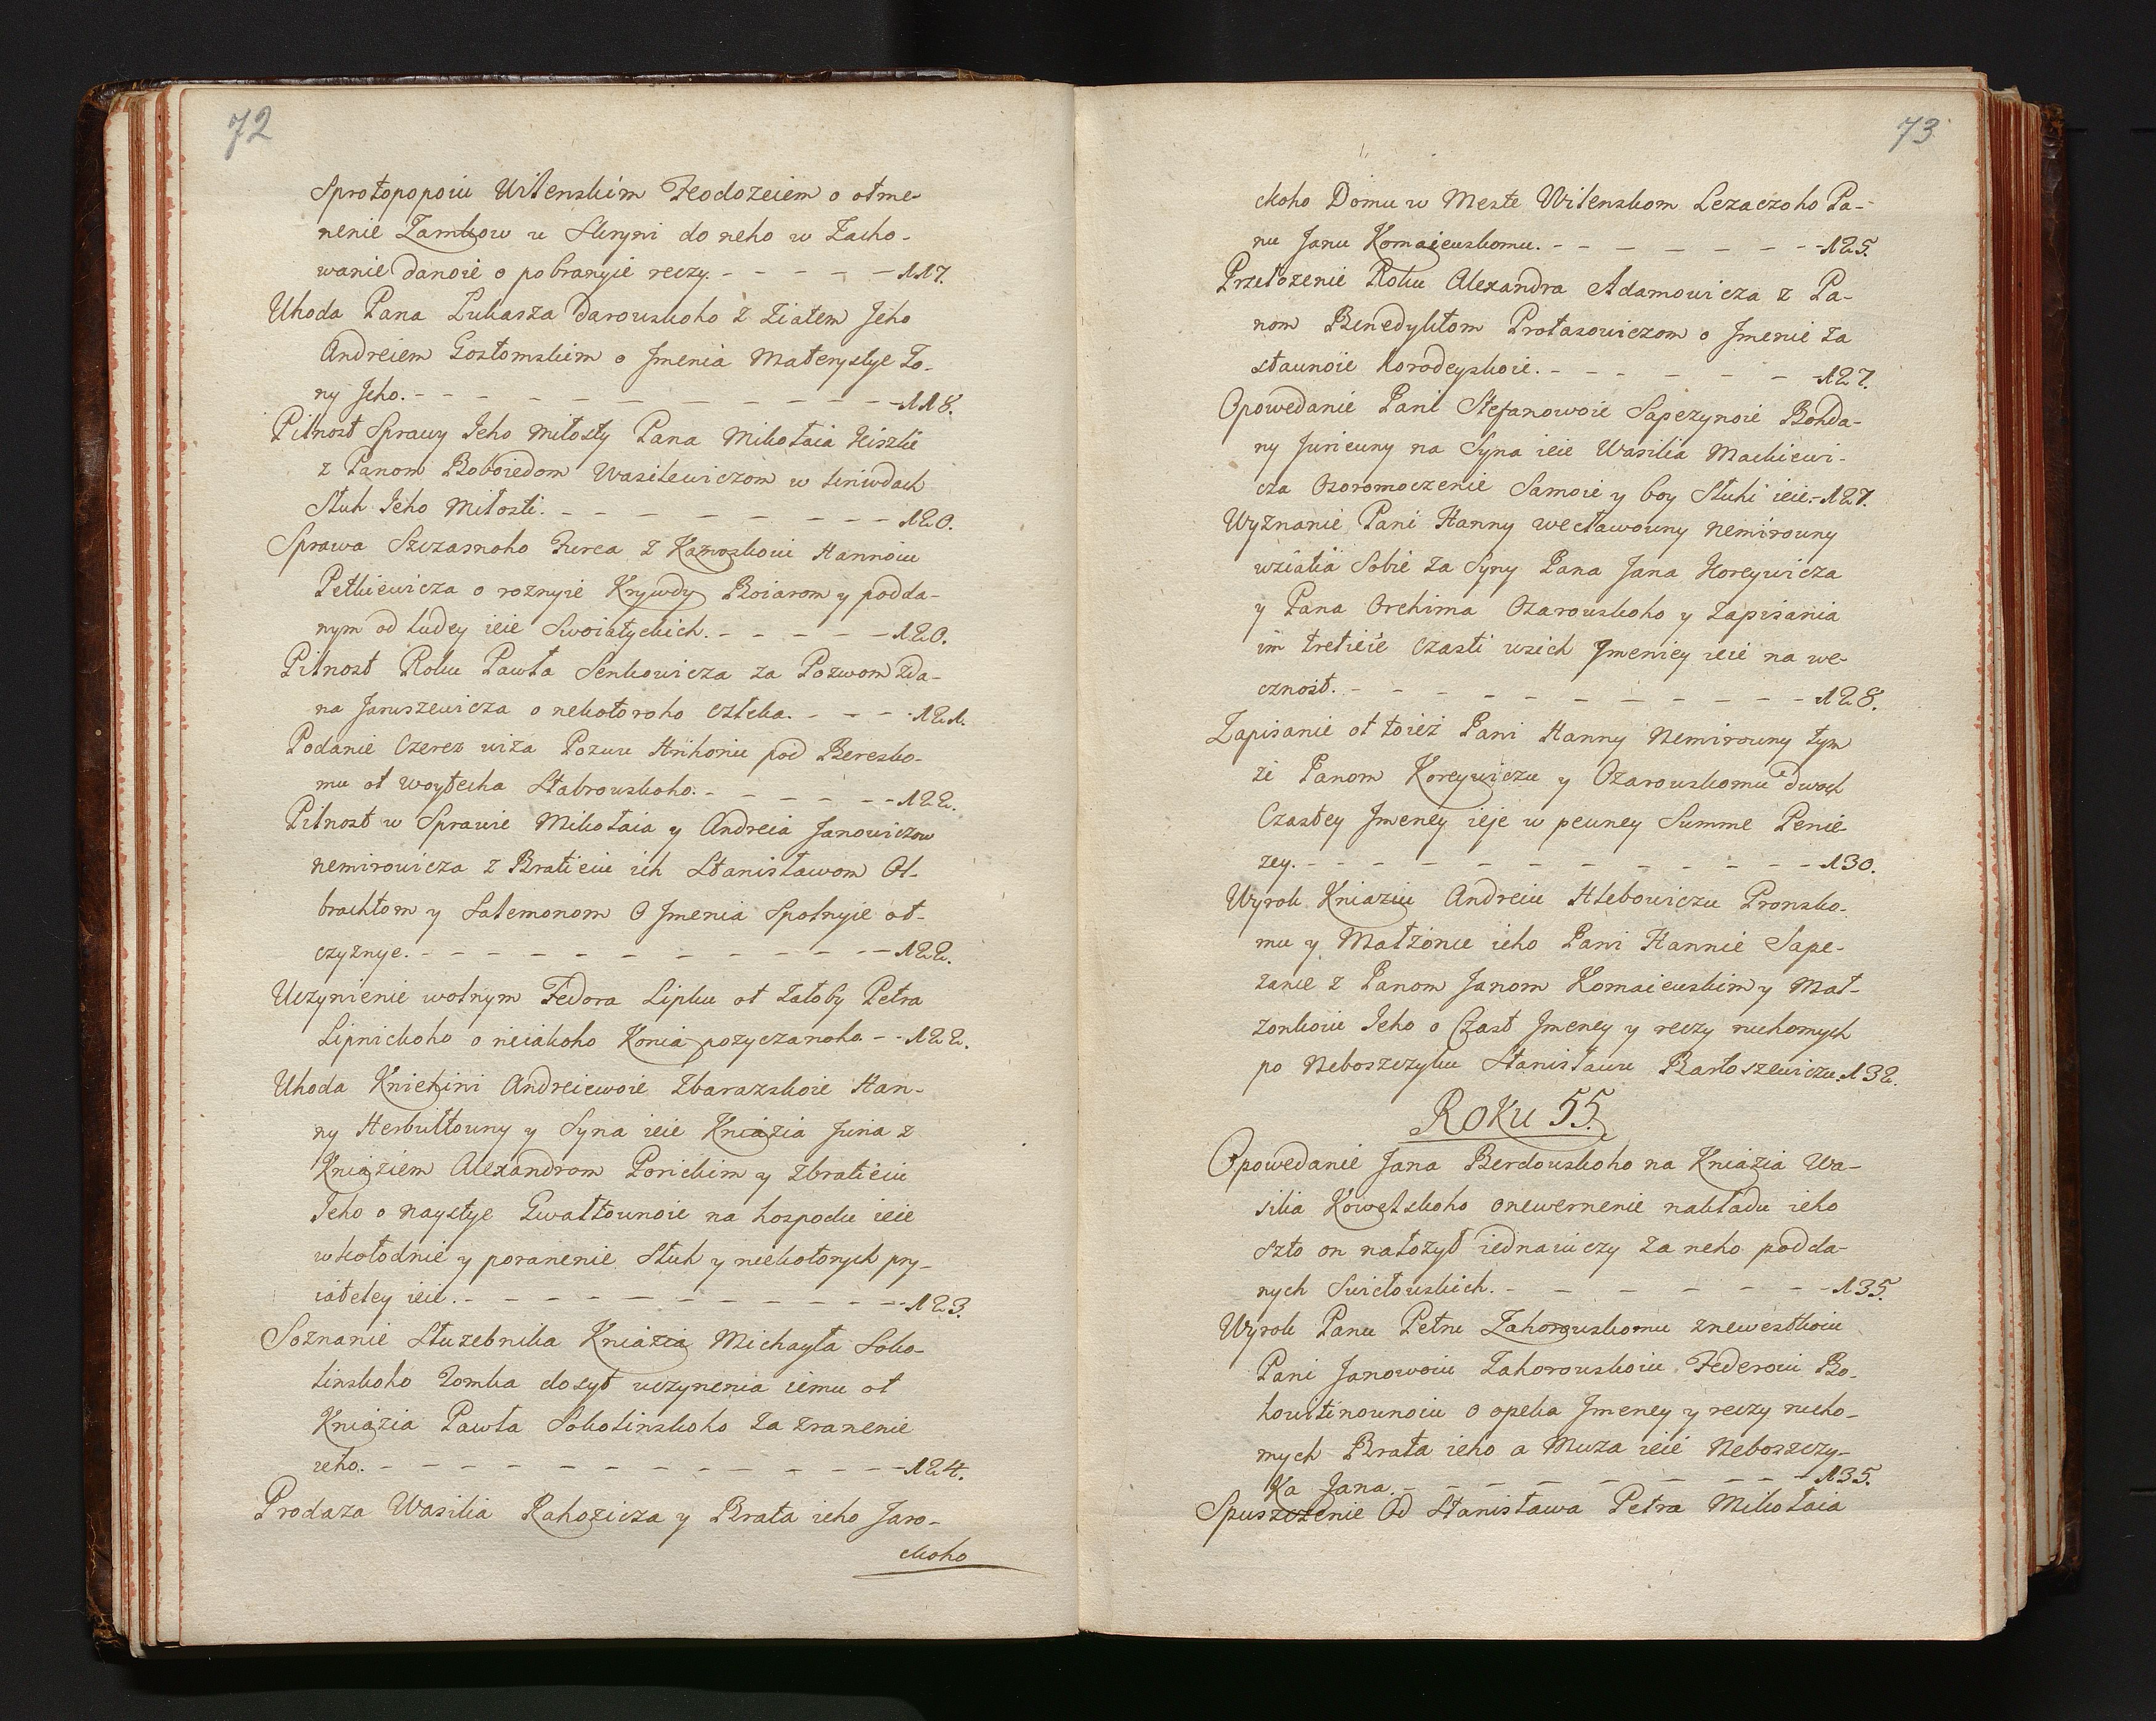 72
Sprotopopoiu Wilenskim Feodozeiem o otme-
nenie Zamkow u Skryni do neho w Zacho-
wanie danoie o pobranyie reczy. - - - - - 117.
Uhoda Pana Lukasza Darouskoho z Ziatem Jeho
Andreiem Gostomskim o Jmenia Materystye Zo-
ny Jeho. - - - - - - - - - - 118.
Pilnost Sprawy Jeho miłosty Pana Mikołaia Kiszki
z Panom Boboiedom Wasilewiczom w kriwdach
Sluh Jeho Miłosti. - - - - - - - 120.
Sprawa Szczasnoho Jurea z Kaznoskoiu Hannoiu
Petkiewicza o roznyie Krywdy Boiarom y podda-
nym od ludey ieie Swoiatyckich. - - - - - 120.
Pilnost Roku Pawła Senkowicza za Pozwom Zda-
na Januszewicza o nekotoroho czlcka. - - - 121.
Podanie Czerez wiza Pozwu Hrihoriu pod Beresko-
mu ot Woytecha Stabrouskoho. - - - - - 122.
Pilnost w Sprawie Mikołaia y Andreia Janowiczow
Nemirowicza z Bratieiu ich Stanisławom Ol-
brachtom y Salemonom O Jmenia Spolnyie ot-
czyznye. - - - - - - - - - - 122.
Uczynienie wolnym Fedora Lipku ot Załoby Petra
Lipnickoho o nieiakoho Konia pozyczanoho - - 122.
Uhoda Kniehini Andreiewoie Zbarazskoie Han-
ny Herbultouny y Syna ieie Kniazia Juria z
Kniaziem Alexandrom Porickim y Zbratieiu
Jeho o Naystye Gwałtounoie na hospodu ieie
w kołodnie y poranenie Sluh y niekotorych pry-
iateley ieie. - - - - - - - - - 123.
Soznanie Służebnika Kniazia Michayła Soko-
linskoho Zomka dosyt uczynenia iemu ot
Kniazia Pawła Sokolinskoho za zranenie
ieho. - - - - - - - - - - - 124.
Prodaza Wasilia Rahozicza y Brata ieho Jaro-
ckoho
73
ckoho Domu w Meste Wilenskom Lezaczoho Pa-
nu Janu Komaieuskomu. - - - - - - 125.
Przełozenie Roku Alexandra Adamowicza z Pa-
nom Benedyktom Protasowiczom o Jmenie Za
staunoie horodeyskoie. - - - - - - 127.
Opowedanie Pani Stefanowoie Sapezynoie Bohda-
ny Jurieuny na Syna ieie Wasilia Mackiewi-
cza Osoromoczenie Samoie y boy Sluhi ieie. - 127.
Wyznanie Pani Hanny Wecławouny Nemirouny
wziatia Sobie za Syny Pana Jana Koreywicza
y Pana Orchima Ozarouskoho y Zapisania
im tretieie Czasti wsich Jmeniey ieie na we-
cznost. - - - - - - - - - - 128.
Zapisanie ot toież Pani Hanny Nemirouny tym
ze Panom Koreywiczu y Ozarouskomu dwoch
Czastey Jmeney ieje w peuney Summe Penie-
zey. - - - - - - - - - - - 130.
Wyrok Kniaziu Andreiu Hlebowiczu Pronsko-
mu y Małzonce ieho Pani Hannie Sape-
zance z Panom Janom Komaieuskim y Mał-
zonkoiu Jeho o Czast Jmeney y reczy ruchomych
po Neboszczyku Stanisławu Bartoszewiczu. 132.
Roku 55.
Opowedanie Jana Berdouskoho na Kniazia Wa-
silia Kowelskoho onewernenie nakładu ieho
szto on nałozył iednaiuczy za neho podda-
nych Swietouskich. - - - - - - - 135.
Wyrok Panu Petru Zahorouskomu znewestkoiu
Pani Janowoiu Zahorouskoiu Federoiu Bo-
howitinounoiu o opeka Jmeney y reczy rucho-
mych Brata ieho a Muza ieie Neboszczy-
Ka Jana. - - - - - - - - - 135.
Spuszczenie Od Stanisława Petra Mikołaia